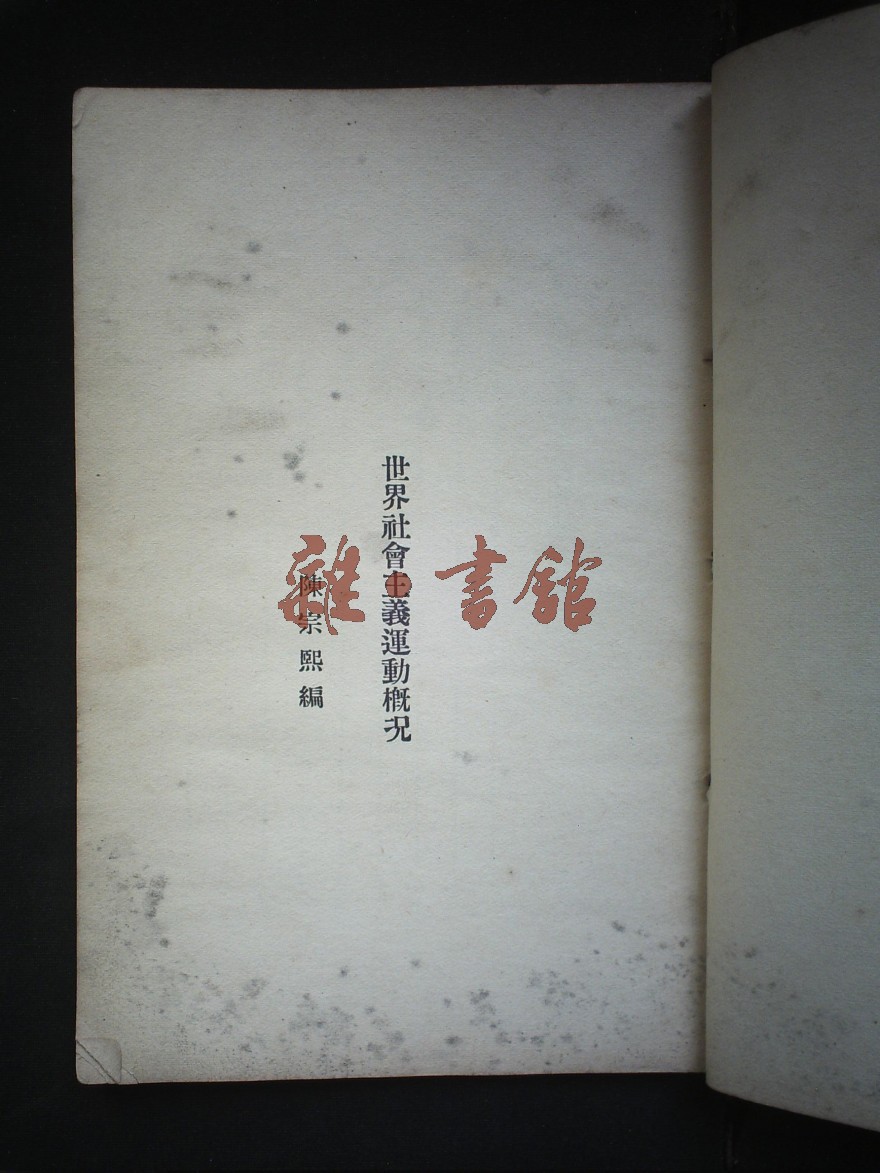 世界社會主義運動概況
陳宗熙編
雜·書館